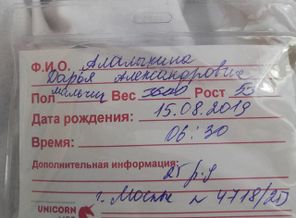 Ф.И.О. Алалыкина
Дарья Александрович
Пол мальчик Вес 3600 Рост 53
Дата рождения: 15.08.2019
Время: 06:30
Дополнительная информация:
г. Москва N 4718/20
UNICORN